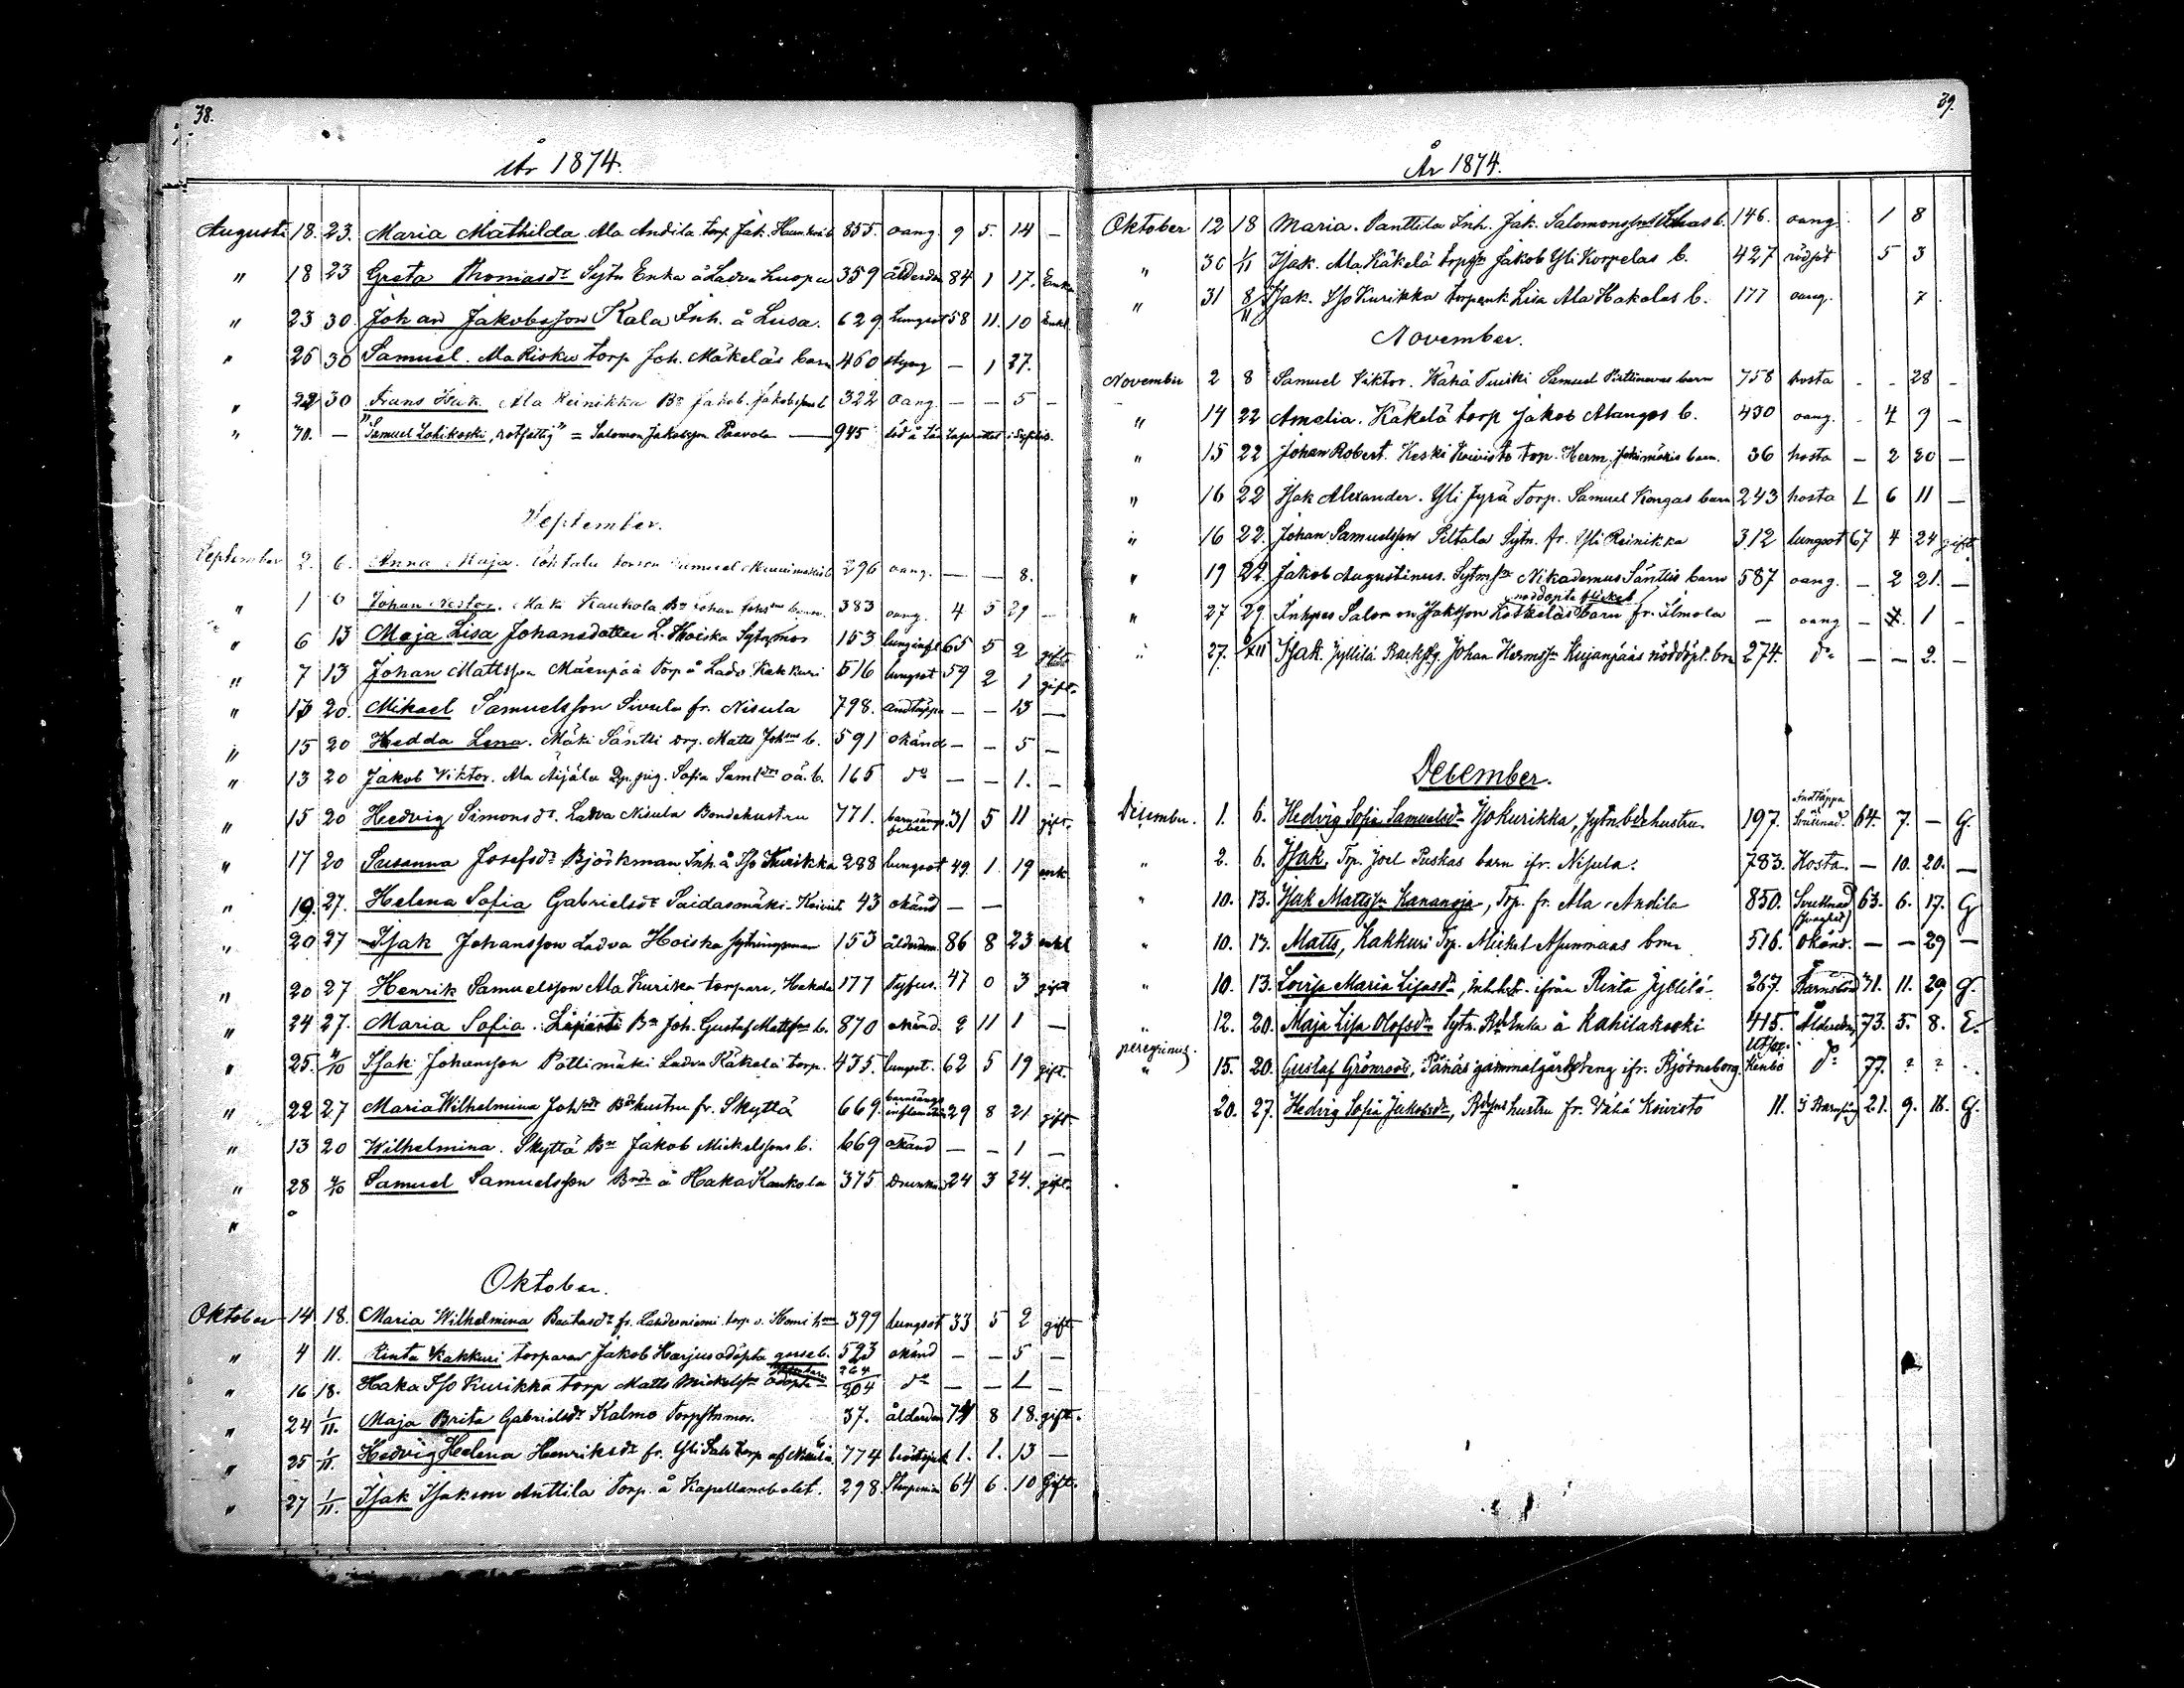 38.
År 1874.
Augusti 18. 23. Maria Mathilda. Ala Andila torp. Jak. Haun. barn 855. oang. 9 5. 14 —
" 18 23 Greta Thomasdr Sytn Enka å Ladva Luopa 359 ålderdom 84 1 17. Enka
" 23 30. Johan Jakobsson Kala Inh. å Lusa. 629 lungsot 58 11. 10 Enkl.
" 26 30 Samuel. Ala Risku torp Joh. Mäkeläs barn 460 styng — 1 27.
" 22 30 Frans Isak Ala Reinikka Bn Jakob. Jakobssons b. 322 oang. — — 5 —
" 30. — "Samuel Lohikoski, rotfattig" = Salomon Jakobsson Paavola — 945 död å Län Lazarettet i
September.
September 2. 6. Anna Maja. Samuel 296 oang. — — 8.
" 1 6 Johan Nestor. Kaukola Bn Johan 383 oang. 4 5 29 —
" 6 13 Maja Lisa Johansdotter L. Hoiska Sytnmor 153 lunginfl 65 5 2 gift
" 7 13 Johan Mattsson Mäenpää Torp å Ladv. Kakkuri 516 lungsot 59 2 1 gift.
" 13 20. Mikael Samuelsson Sivula fr. Nisula 798. andtäppa — — 13 —
" 15 20 Hedda Lena. Mäki Säntti drg. Matts Johsons b. 591 okänd — — 5 —
" 13 20 Jakob Viktor. Ala Äijälä pig. Sofia Samldrs oä. b. 165 do — — 1. —
" 15 20 Hedvig Simonsdr. Ladva Nisula Bondehustru 771. barnsängs feber 31 5 11 gift.
" 17 20 Susanna Josefsdr Björkman Inh. å Iso Kurikka 288 lungsot 49. 1. 19 enk
" 19. 27. Helena Sofia Gabrielsdr Saidasmäki-Koivisto 43 okänd — —
" 20 27 Isak Johansson Ladva Hoiska sytningsman 153 ålderdom. 86 8 23 enkl
" 20 27 Henrik Samuelsson Ala Kurikka torpare, Hakala 177 Tyfus. 47 0 3 gift
" 24 27. Maria Sofia. Bn Joh. Gustaf Mattssons b. 870 okänd. 2 11 1 —
" 25. 4/10 Isak Johansson Pöllimäki Ladva Käkelä torp. 435. lungsot. 62 5 19 gift.
" 22 27 Maria Wilhelmina Johsdr Bdhustru fr. Skyttä 669. barnsängs inflamation 29 8 21 gift
" 13 20 Wilhelmina. Skyttä Bn Jakob Mickelssons b. 669 okänd — — 1 —
" 28 4/10 Samuel Samuelsson Bnde å Haka Kaukola 375 Drunknad 24 3 24. gift.
"
Oktober.
Oktober 14 18. Maria Wilhelmina fr. torp 399 lungsot 33 5 2 gift
" 4 11. Rinta Kakkuri torparen Jakob Harjus odöpta gosseb. 523 okänd — — 5 —
" 16 18. Haka Iso Kurikka torp Matts Mickelssons odöpta 264/204 do — — 1 —
" 24 1/11. Maja Brita Gabrielsdr Kalmo Torpstnmor. 37. ålderdom 74 8 18. gift.
" 25 1/11. Hedvig Helena Henriksdr fr. Yli torp af Nisula 774 bröstsjuk 1. 1. 13 —
" 27 1/11. Isak Isakson Anttila Torp. å Kapellansbolet. 298. 64 6. 10 Gift.
39.
År 1874.
Oktober 12 18 Maria. Panttila Inh. Jak. Salomonssons b. 146. oang. 1 8
" 30 1/11 Isak. Ala Käkelä torpson Jakob Yli Korpelas b. 427 rödsot 5 3
" 31 8/11 Isak. Iso Kurikka torpenk Lisa Ala Hakalas b. 177 oang. 7.
November.
November 2 8 Samuel Viktor. Vähä Tuiski Samuel barn 758 hosta - - 28 -
" 14 22 Amalia. Käkelä torp Jakob Alangos b. 430 oang. - 4 9 —
" 15 22 Johan Robert. Keski Koivisto torp. Herm. barn. 36 hosta — 2 20 —
" 16 22 Isak Alexander. Yli Jyrä Torp. Samuel Kongas barn 243 hosta 1 6 11 —
" 16 22. Johan Samuelsson Piltala Sytn. fr. Yli Reinikka 312 lungsot 67 4 24 gift
" 19 22. Jakob Augustinus. Sytmson Nikademus Säntis barn 587 oang. — 2 21. —
" 27 29. Inhyses Salomon Jakssson Koskelas nöddöpta flickeb barn fr. Ilmola — oang — 1 —
" 27. 6/XII Isak. Jyllilä Backstg. Johan Hermssn Kujanpääs nöddöpt. brn 274. do — — 2. —
December.
December. 1. 6. Hedvig Sofia Samuelsdr Iso Kurikka, sytn. bdehustru. 197. Andtäppa Svullnad. 64. 7. — G.
" 2. 6. Isak, Tp. Joel Puskas barn ifr. Nisula. 783. Hosta. — 10. 20. —
" 10. 13. Isak Mattssn Kananoja, Tp. fr. Ala-Andila 850. Svullnad 63. 6. 17. G
" 10. 13. Matts, Kakkuri Tp. Mickel Asunmaas brn 516. okänd. — — 29 —
" 10. 13. Lovisa Maria Lisasdr, ifrån Rinta Jyllilä 267. Barnsbörd 31. 11. 29 G.
" 12. 20. Maja Lisa Olofsdr Sytn. Bd Enka å Kahilakoski 415. Ålderdom 73. 5. 8. E.
peregrinus. " 15. 20. Gustaf Grönroos, Pänäs gammalgårdsdreng ifr. Björneborg. do 77. ? ?
20. 27. Hedvig Sofia Jakobsdr, Bdsons hustru fr. Vähä Koivisto 11. i Barnsäng 21. 9. 16. G.